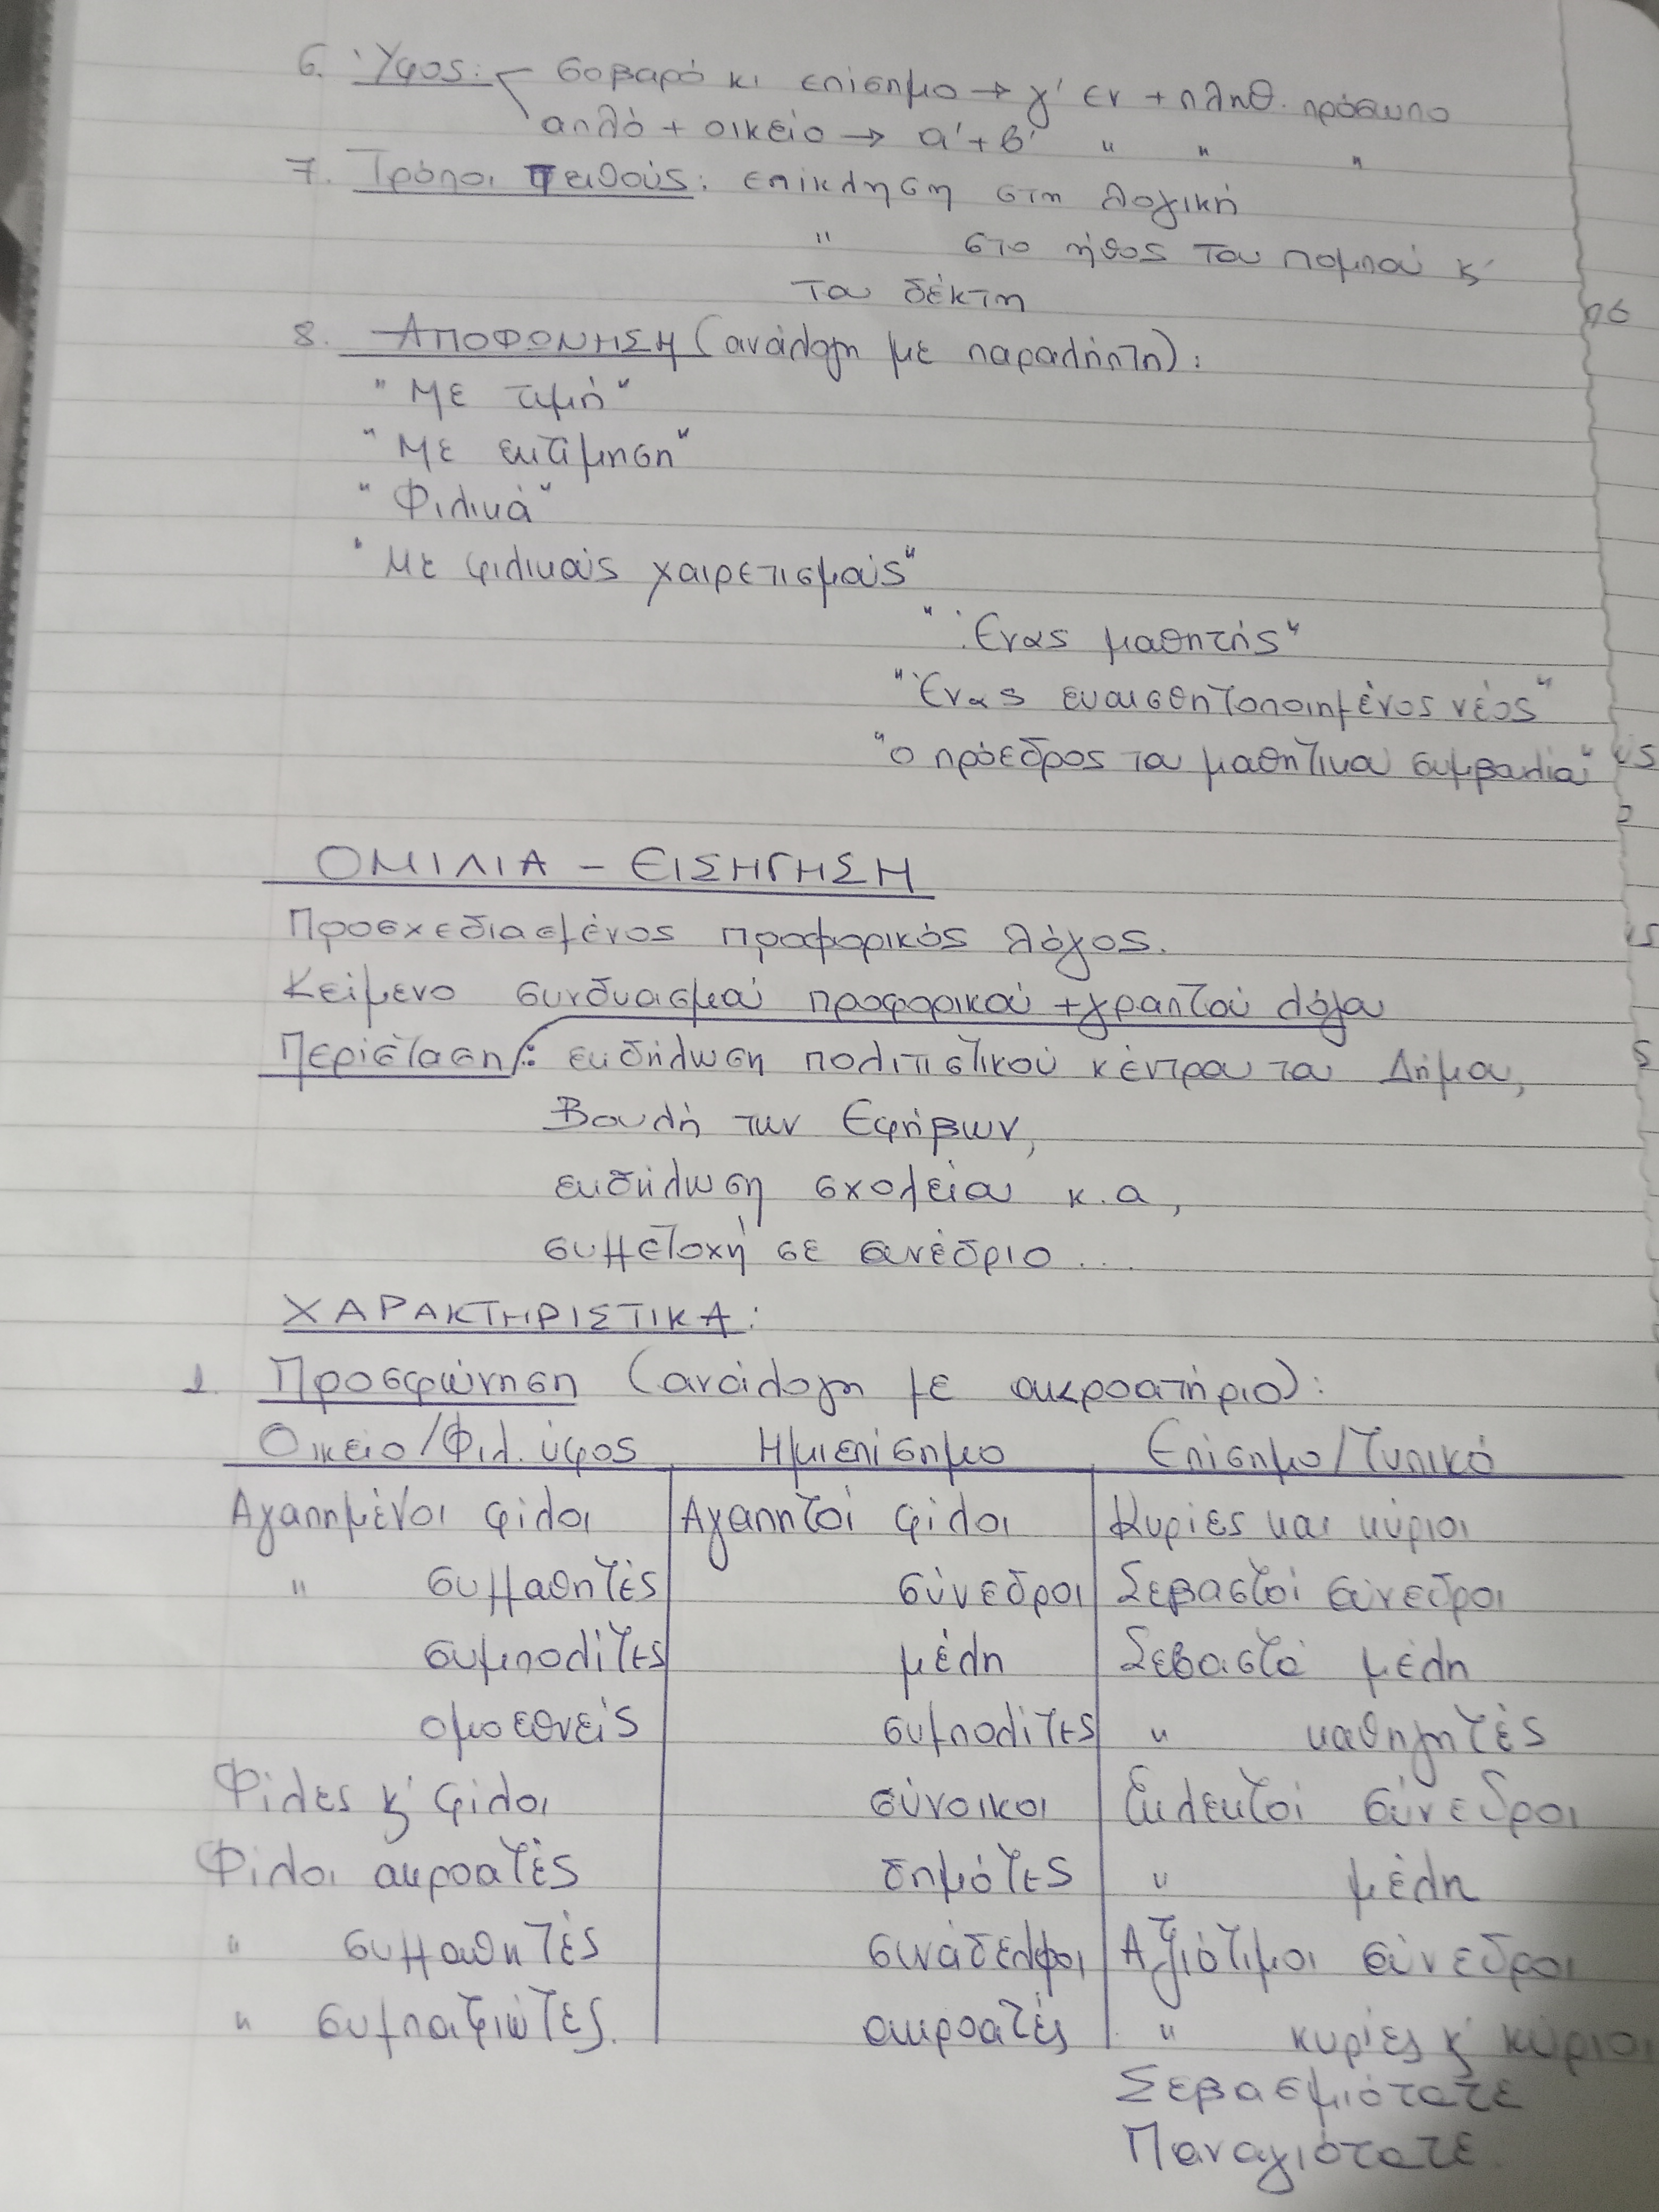 6. Ύφος: σοβαρό κι επίσημο → γ' εν + πληθ. πρόσωπο
απλό + οικείο → α' + β' " " "
7. Τρόποι πειθούς: επίκληση στη λογική
" στο ήθος του πομπού κ'
του δέκτη
8. ΑΠΟΦΩΝΗΣΗ (ανάλογη με παραλήπτη):
"Με τιμή"
"Με εκτίμηση"
"Φιλικά"
"Με φιλικούς χαιρετισμούς"
"Ένας μαθητής"
"Ένας ευαισθητοποιημένος νέος"
"ο πρόεδρος του μαθητικού συμβουλίου"
ΟΜΙΛΙΑ – ΕΙΣΗΓΗΣΗ
Προσχεδιασμένος προφορικός λόγος.
Κείμενο συνδυασμού προφορικού + γραπτού λόγου
Περίσταση: εκδήλωση πολιτιστικού κέντρου του Δήμου,
Βουλή των Εφήβων,
εκδήλωση σχολείου κ.α,
συμμετοχή σε συνέδριο ...
ΧΑΡΑΚΤΗΡΙΣΤΙΚΑ:
1. Προσφώνηση (ανάλογη με ακροατήριο):
Οικείο/Φιλ. ύφος Ημιεπίσημο Επίσημο/Τυπικό
Αγαπημένοι φίλοι Αγαπητοί φίλοι Κυρίες και κύριοι
" συμμαθητές σύνεδροι Σεβαστοί σύνεδροι
συμπολίτες μέλη Σεβαστά μέλη
ομοεθνείς συμπολίτες " καθηγητές
Φίλες κ' φίλοι σύνοικοι Εκλεκτοί σύνεδροι
Φίλοι ακροατές δημότες " μέλη
" συμμαθητές συνάδελφοι Αξιότιμοι σύνεδροι
" συμπατριώτες. ακροατές " κυρίες κ' κύριοι
Σεβασμιότατε
Παναγιότατε.